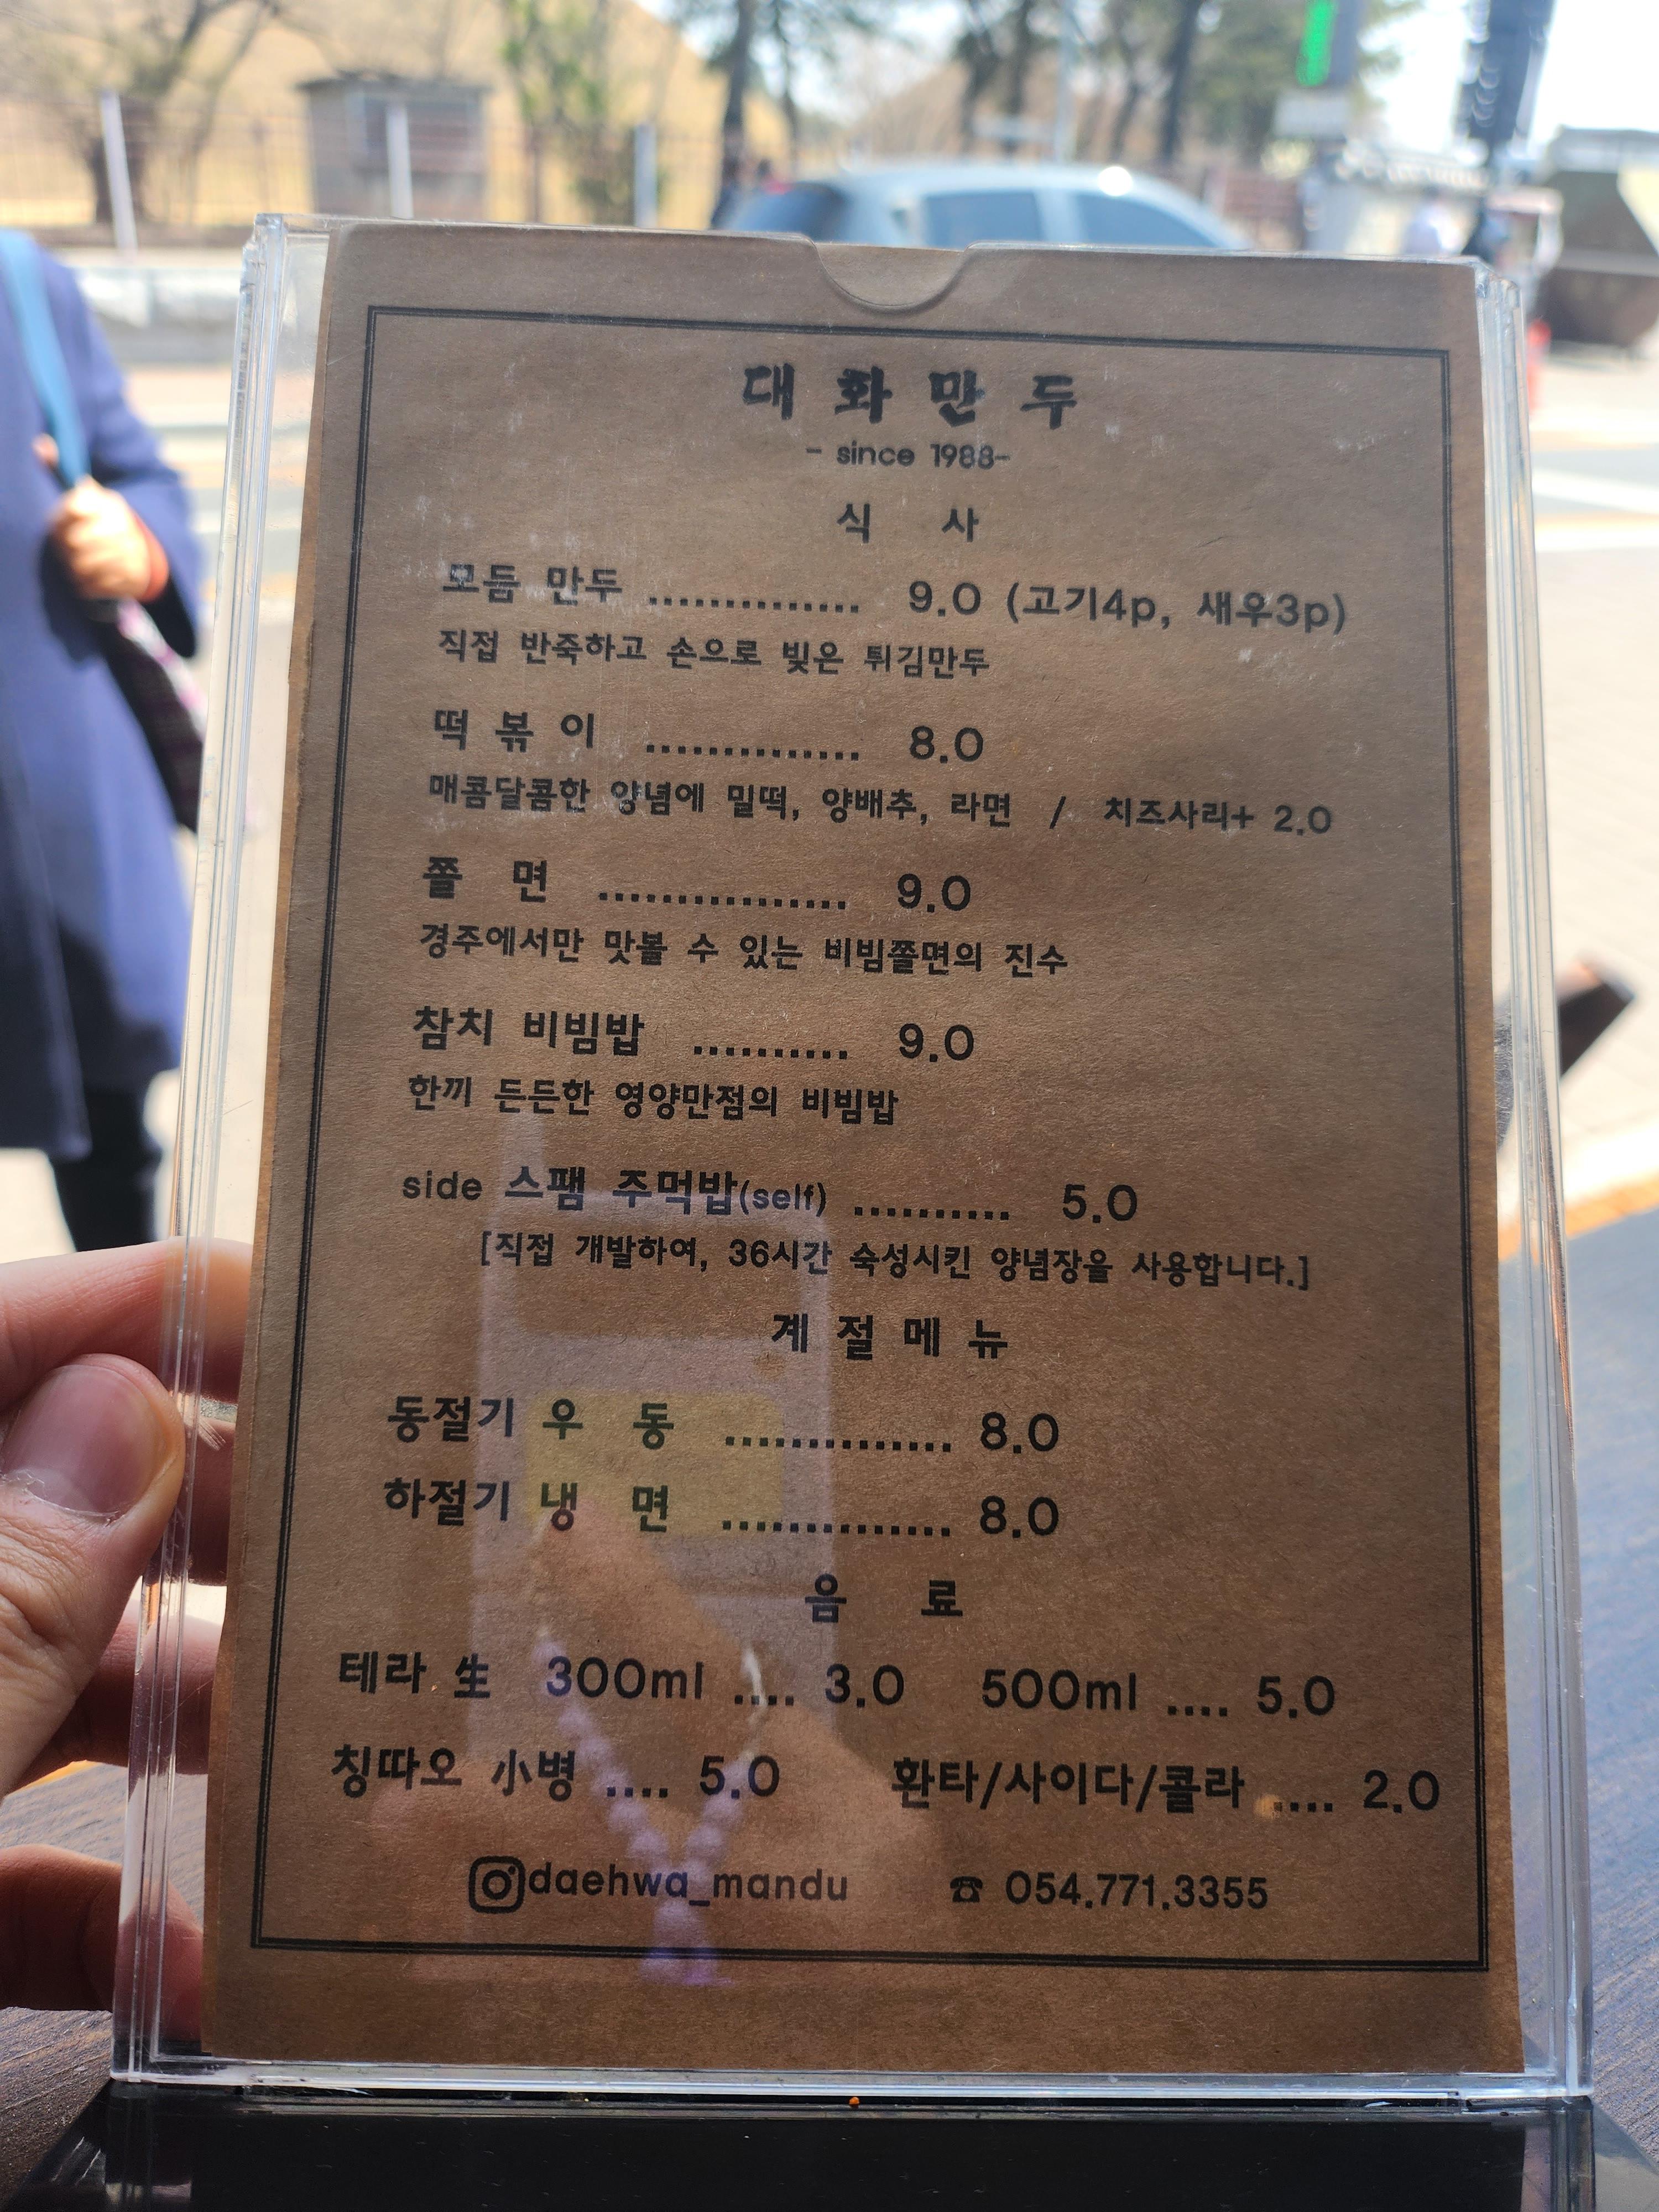 대화만두
- since 1988-
식 사
모듬 만두 .............. 9.0 (고기4p, 새우3p)
직접 반죽하고 손으로 빚은 튀김만두
떡 볶 이 .............. 8.0
매콤달콤한 양념에 밀떡, 양배추, 라면 / 치즈사리+ 2.0
쫄 면 ................ 9.0
경주에서만 맛볼 수 있는 비빔쫄면의 진수
참치 비빔밥 .......... 9.0
한끼 든든한 영양만점의 비빔밥
side 스팸 주먹밥(self) .......... 5.0
[직접 개발하여, 36시간 숙성시킨 양념장을 사용합니다.]
계 절 메 뉴
동절기 우 동 ............... 8.0
하절기 냉 면 ............... 8.0
음 료
테라 生 300ml .... 3.0 500ml .... 5.0
칭따오 小병 .... 5.0 환타/사이다/콜라 .... 2.0
daehwa_mandu ☎ 054.771.3355